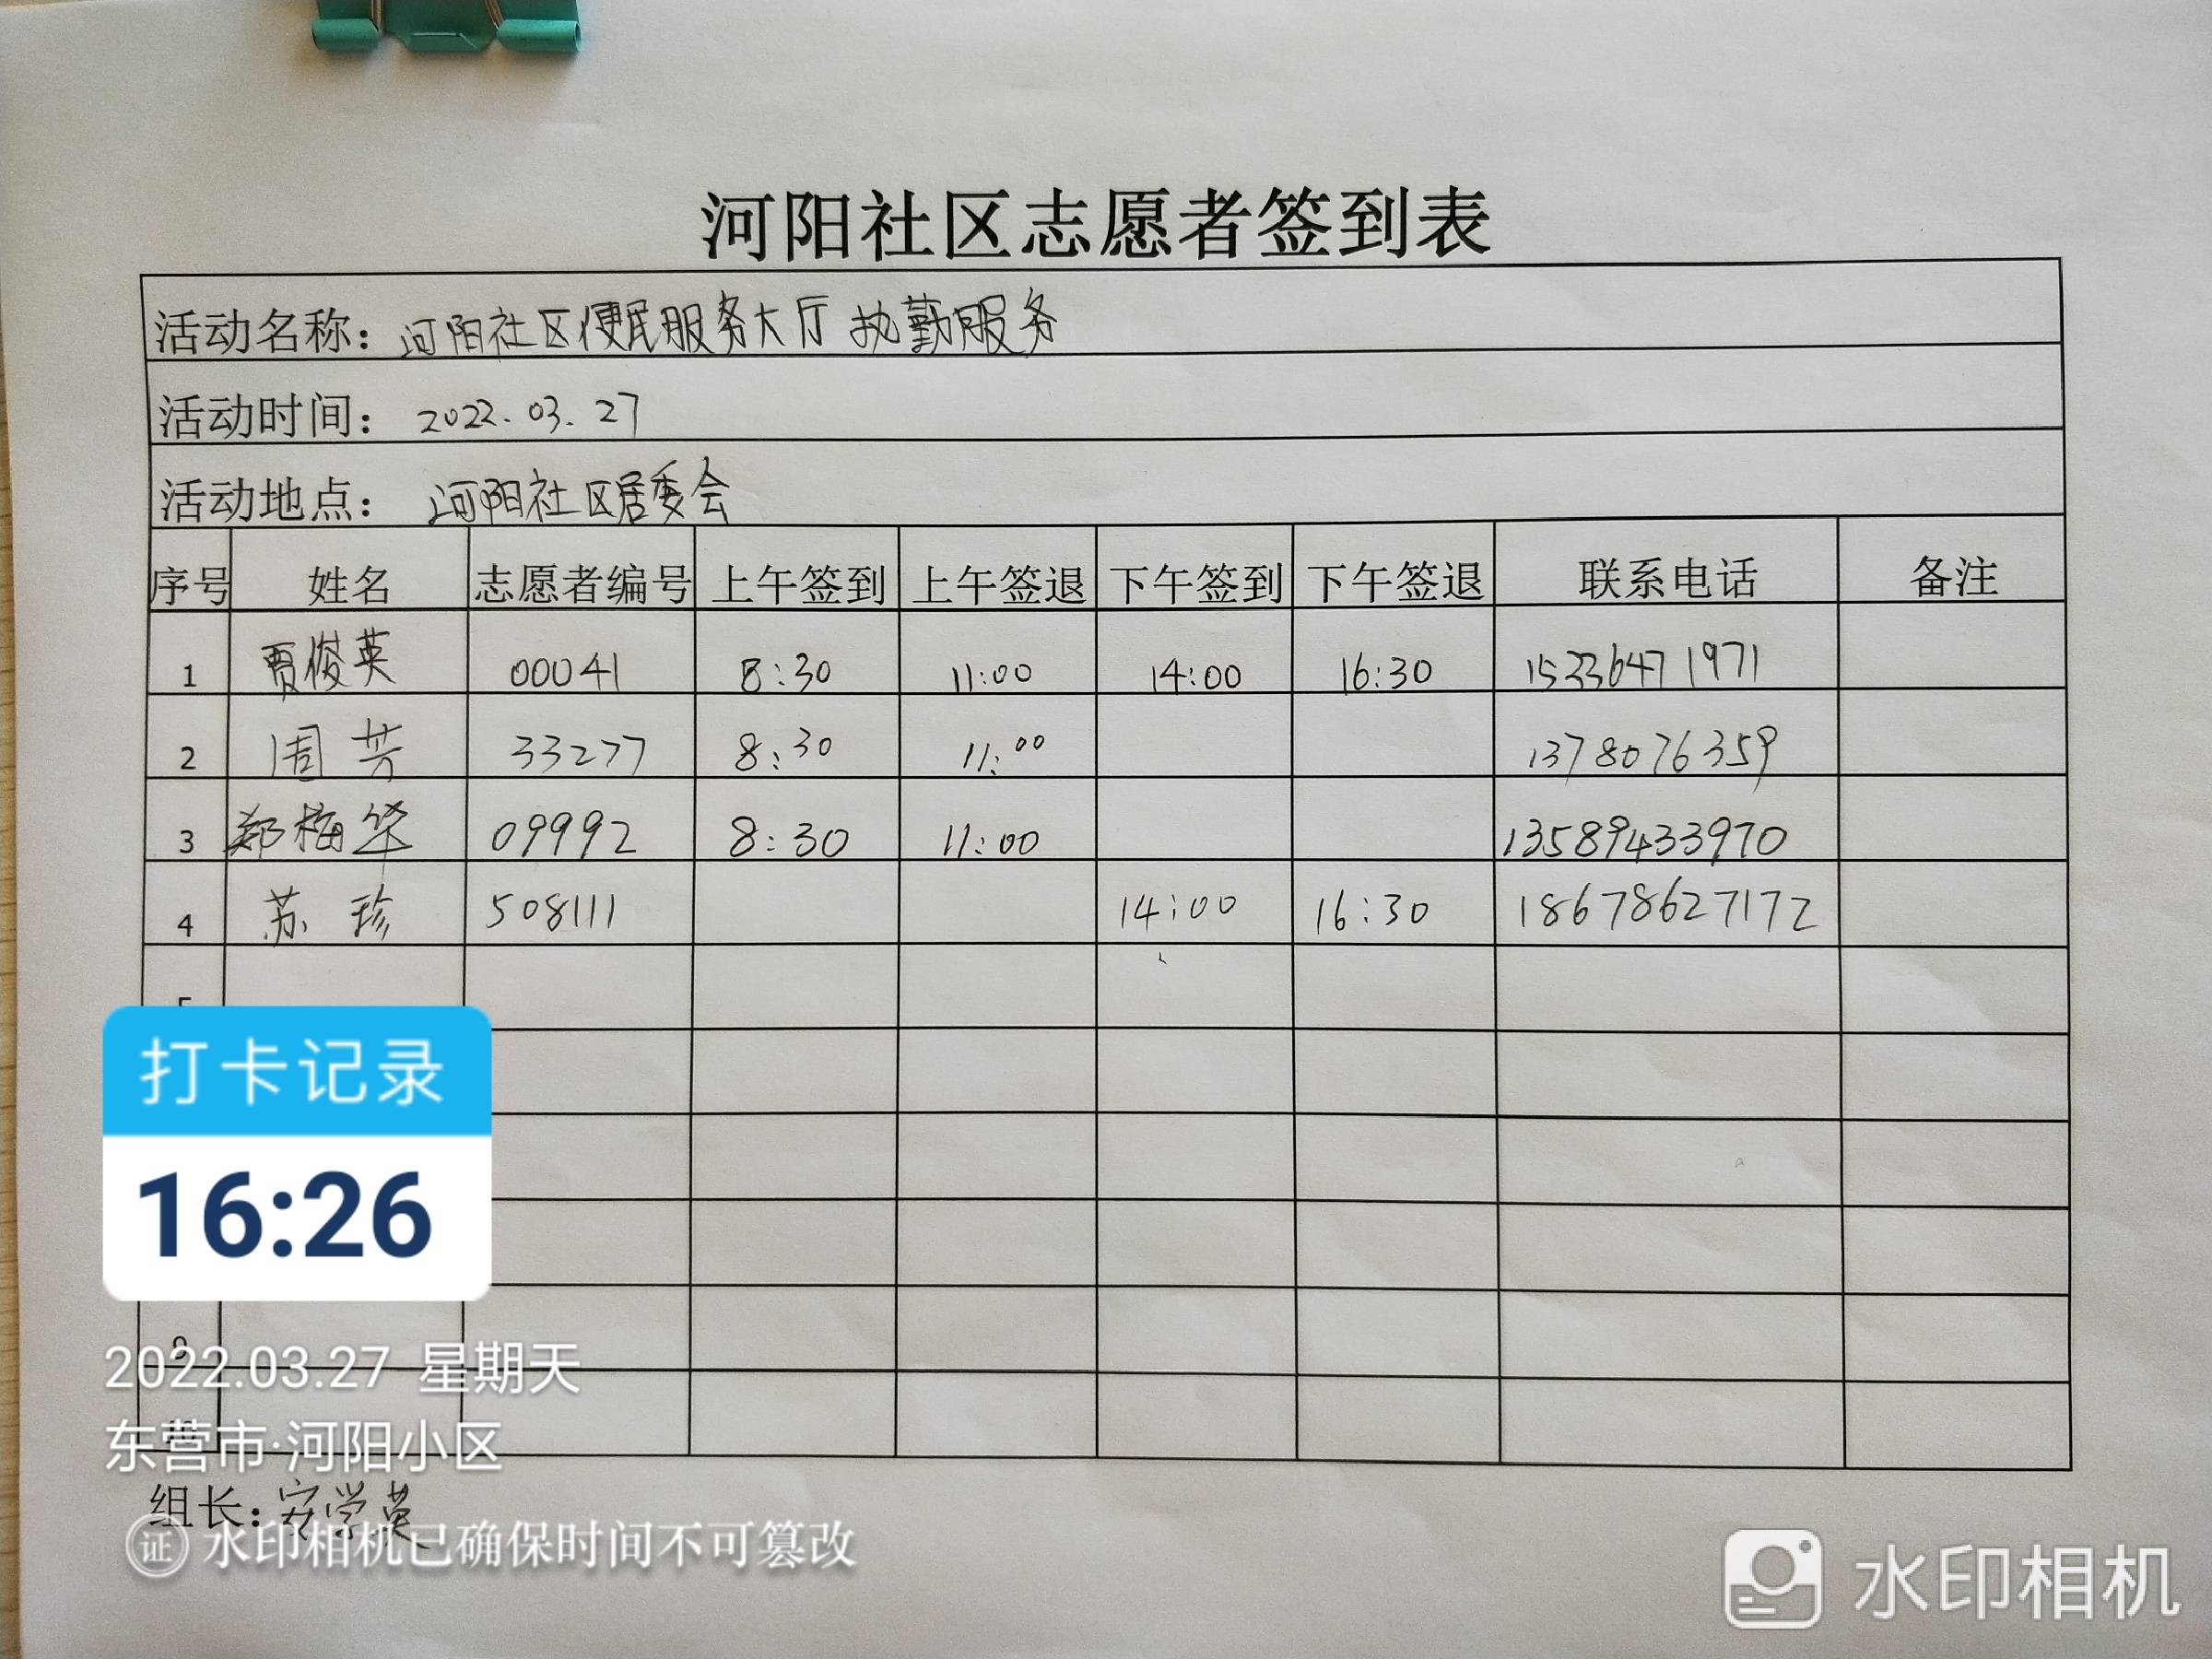 河阳社区志愿者签到表
活动名称：河阳社区便民服务大厅执勤服务
活动时间：2022.03.27
活动地点：河阳社区居委会
序号 姓名 志愿者编号 上午签到 上午签退 下午签到 下午签退 联系电话 备注
1 贾俊英 00041 8:30 11:00 14:00 16:30 15336471971
2 周芳 33277 8:30 11:00 1378076359
3 郑梅华 09992 8:30 11:00 13589433970
4 苏珍 508111 14:00 16:30 18678627172
5
打卡记录
16:26
9
2022.03.27 星期天
东营市·河阳小区
组长：安学英
证 水印相机已确保时间不可篡改
水印相机